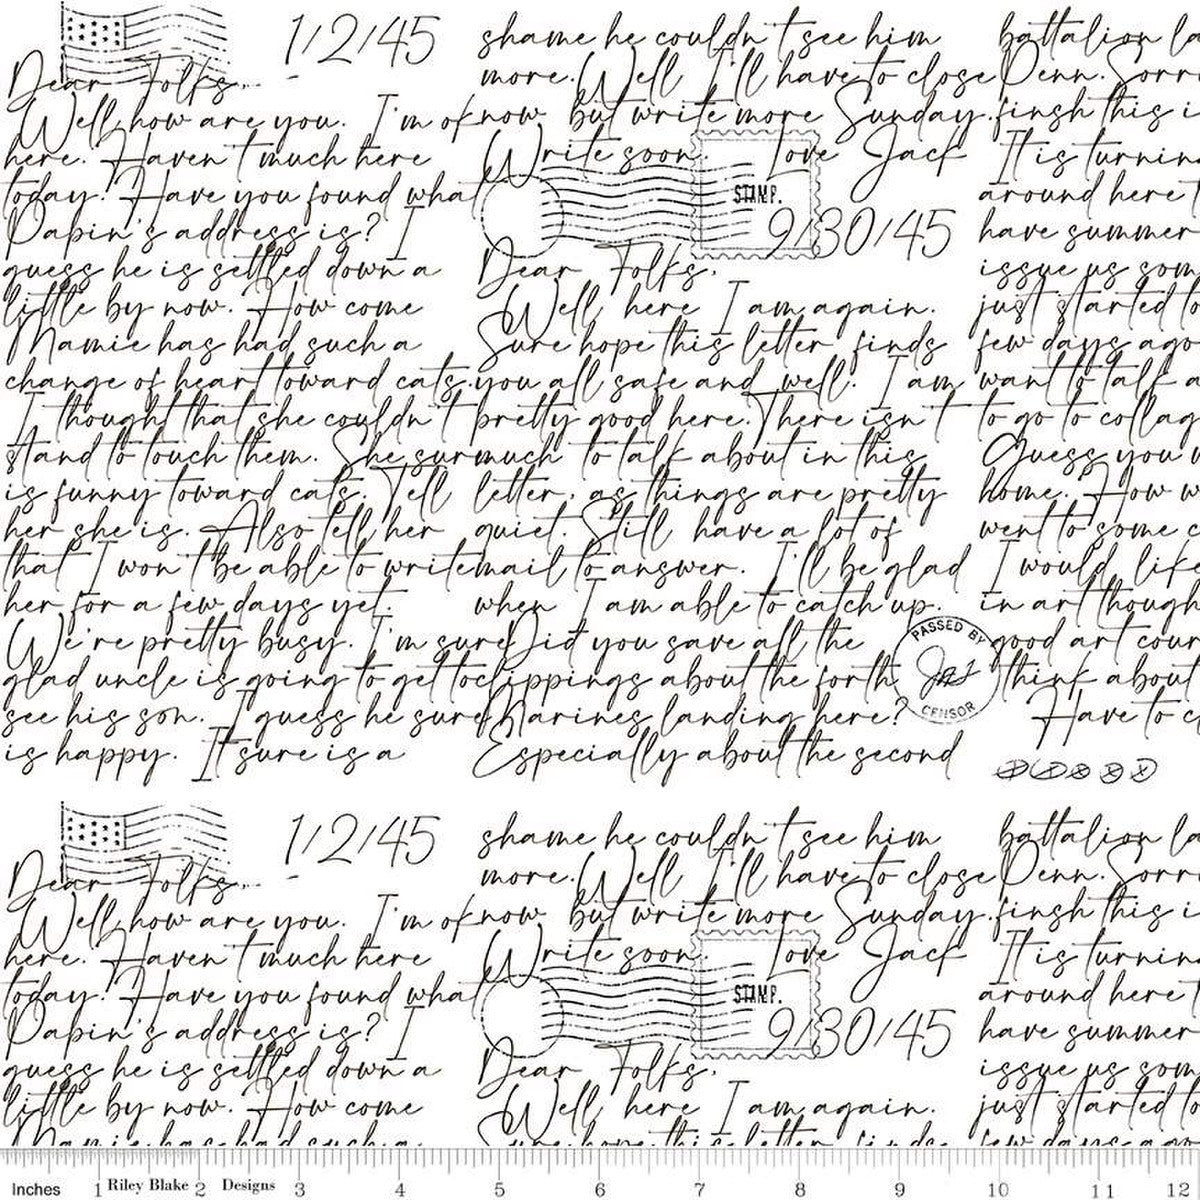 1/2/45
Dear Folks,
Well, how are you. I'm ok
here. Haven't much here
today. Have you found what
Dabin's address is? I
guess he is settled down a
little by now. How come
Mamie has had such a
change of heart toward cats.
I thought that she couldn't
stand to touch them. She sur
is funny toward cats. Tell
her she is. Also tell her
that I won't be able to write
her for a few days yet.
We're pretty busy. I'm sure
glad uncle is going to get to
see his son. I guess he sure
is happy. It sure is a
shame he couldn't see him
more. Well I'll have to close
now but write more Sunday.
Write soon. Love Jack
STAMP.
9/30/45
Dear Folks,
Well here I am again.
Sure hope this letter finds
you all safe and well. I am
pretty good here. There isn't
much to talk about in this
letter, as things are pretty
quiet. Still have a lot of
mail to answer. I'll be glad
when I am able to catch up.
Did you save all the
clippings about the forth
Marines landing here?
Especially about the second
PASSED BY
CENSOR
battalion la
Penn. Sorr
finsh this i
It is turnin
around here t
have summer
issue us som
just started to
few days ago
want to talk a
to go to collag
Guess you w
home. How w
went to some c
I would like
in art though
good art cour
think about
Have to c
1/2/45
Dear Folks,
Well, how are you. I'm ok
here. Haven't much here
today. Have you found what
Dabin's address is? I
guess he is settled down a
little by now. How come
Mamie has had such a
shame he couldn't see him
more. Well I'll have to close
now but write more Sunday.
Write soon. Love Jack
STAMP.
9/30/45
Dear Folks,
Well here I am again.
Sure hope this letter finds
battalion la
Penn. Sorr
finsh this i
It is turnin
around here t
have summer
issue us som
just started to
few days ago
Inches 1 Riley Blake 2 Designs 3 4 5 6 7 8 9 10 11 12